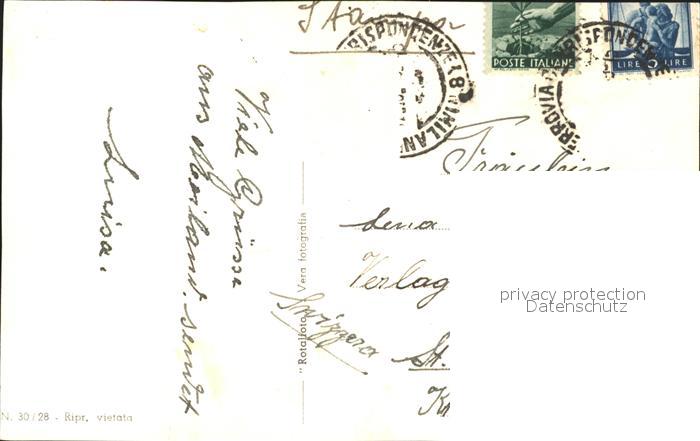 Stampe
POSTE ITALIANE
LIRE 5 LIRE
RISPONDENZE
MILAN
FERROVIA
RISPONDENZE
Viele Grüsse
aus Mailand. sendet
Luisa.
"Rotalfoto" Vera fotografia
N. 30/28 - Ripr. vietata
Fräulein
Verlag
St.
Svizzera
privacy protection
Datenschutz